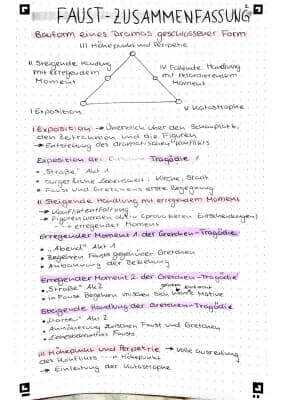 FAUST-ZUSAMMENFASSUNG
Bauform eines Dramas geschlossener Form
III Höhepunkt und Peripetie
II Steigende Handlung
mit erregendem
Moment
IV Fallende Handlung
mit retardierendem
Moment
I Exposition
V Katastrophe
I Exposition → Überblick über den Schauplatz,
den Zeitrahmen und die Figuren
→ Entstehung des dramatischen Konflikts
Exposition der Gretchen Tragödie
"Straße" Akt 1
bürgerliche Lebenswelt: Kirche, Stadt
Faust und Gretchens erste Begegnung
II Steigende Handlung mit erregendem Moment
→ Konfliktentfaltung
→ Figuren werden aktiv (provozieren Entscheidungen)
→ erregender Moment
Erregender Moment 1 der Gretchen-Tragödie
"Abend" Akt 1
Begehren Fausts gegenüber Gretchen
Anbahnung der Beziehung
Erregender Moment 2 der Gretchen-Tragödie
"Straße" Akt 2
in Fausts Begehren mischen sich Motive
Steigende Handlung der Gretchen-Tragödie
"Garten" Akt 2
Annäherung zwischen Faust und Gretchen
Liebesbekenntnis Fausts
III Höhepunkt und Peripetie → volle Ausreifung
des Konflikts → Höhepunkt
→ Einleitung der Katastrophe